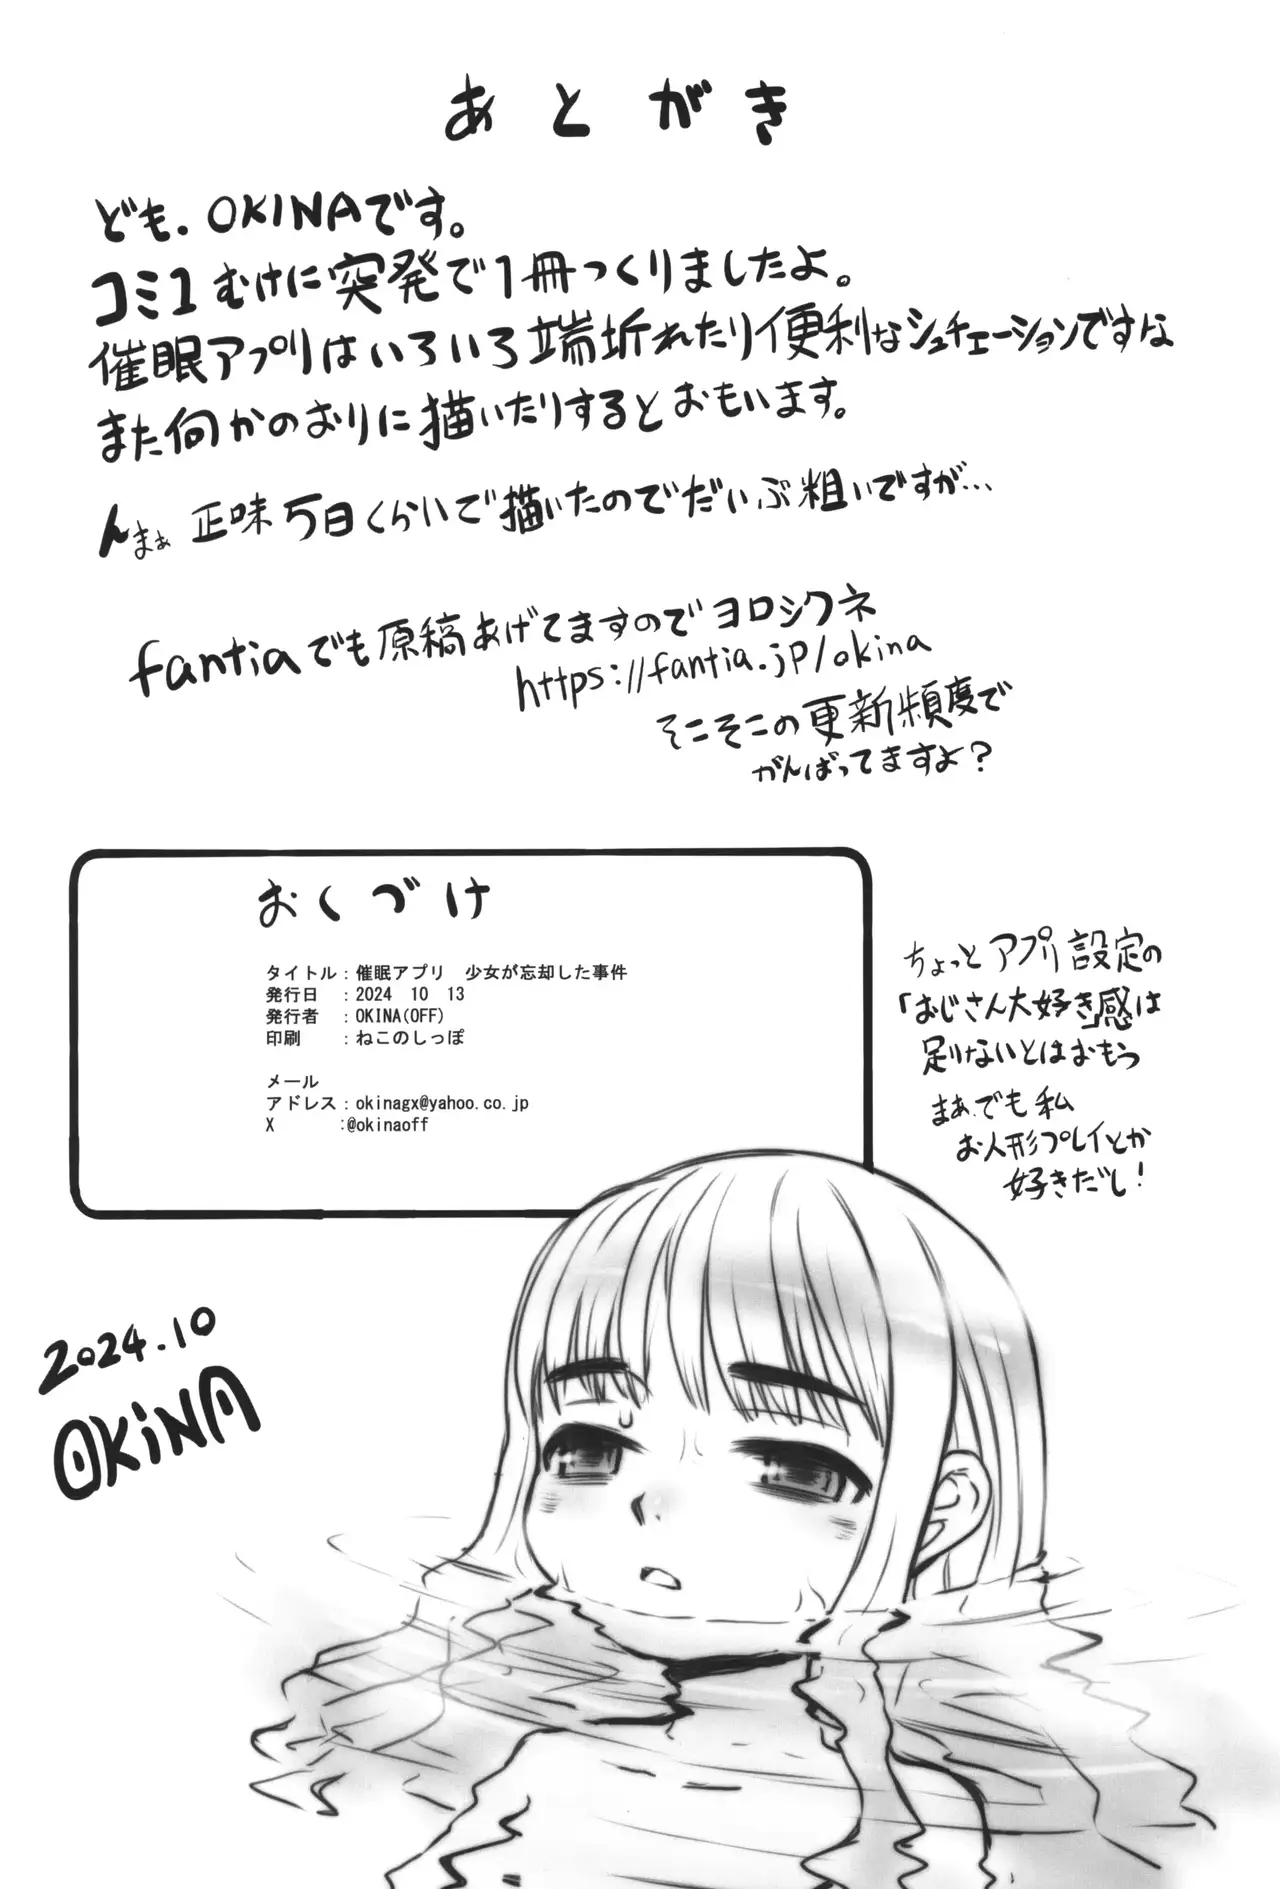 あとがき
ども.OKINAです。
コミ1むけに突発で1冊つくりましたよ。
催眠アプリはいろいろ端折れたり便利なシュチェーションですな
また何かのおりに描いたりするとおもいます。
んまぁ 正味5日くらいで描いたのでだいぶ粗いですが…
fantiaでも原稿あげてますのでヨロシクネ
https://fantia.jp/okina
そこそこの更新頻度で
がんばってますよ?
おくづけ
タイトル:催眠アプリ 少女が忘却した事件
発行日 :2024 10 13
発行者 :OKINA(OFF)
印刷 :ねこのしっぽ
メール
アドレス:okinagx@yahoo.co.jp
X :@okinaoff
ちょっとアプリ設定の
「おじさん大好き」感は
足りないとはおもう
まぁ.でも私
お人形プレイとか
好きだし!
2024.10
OKiNA